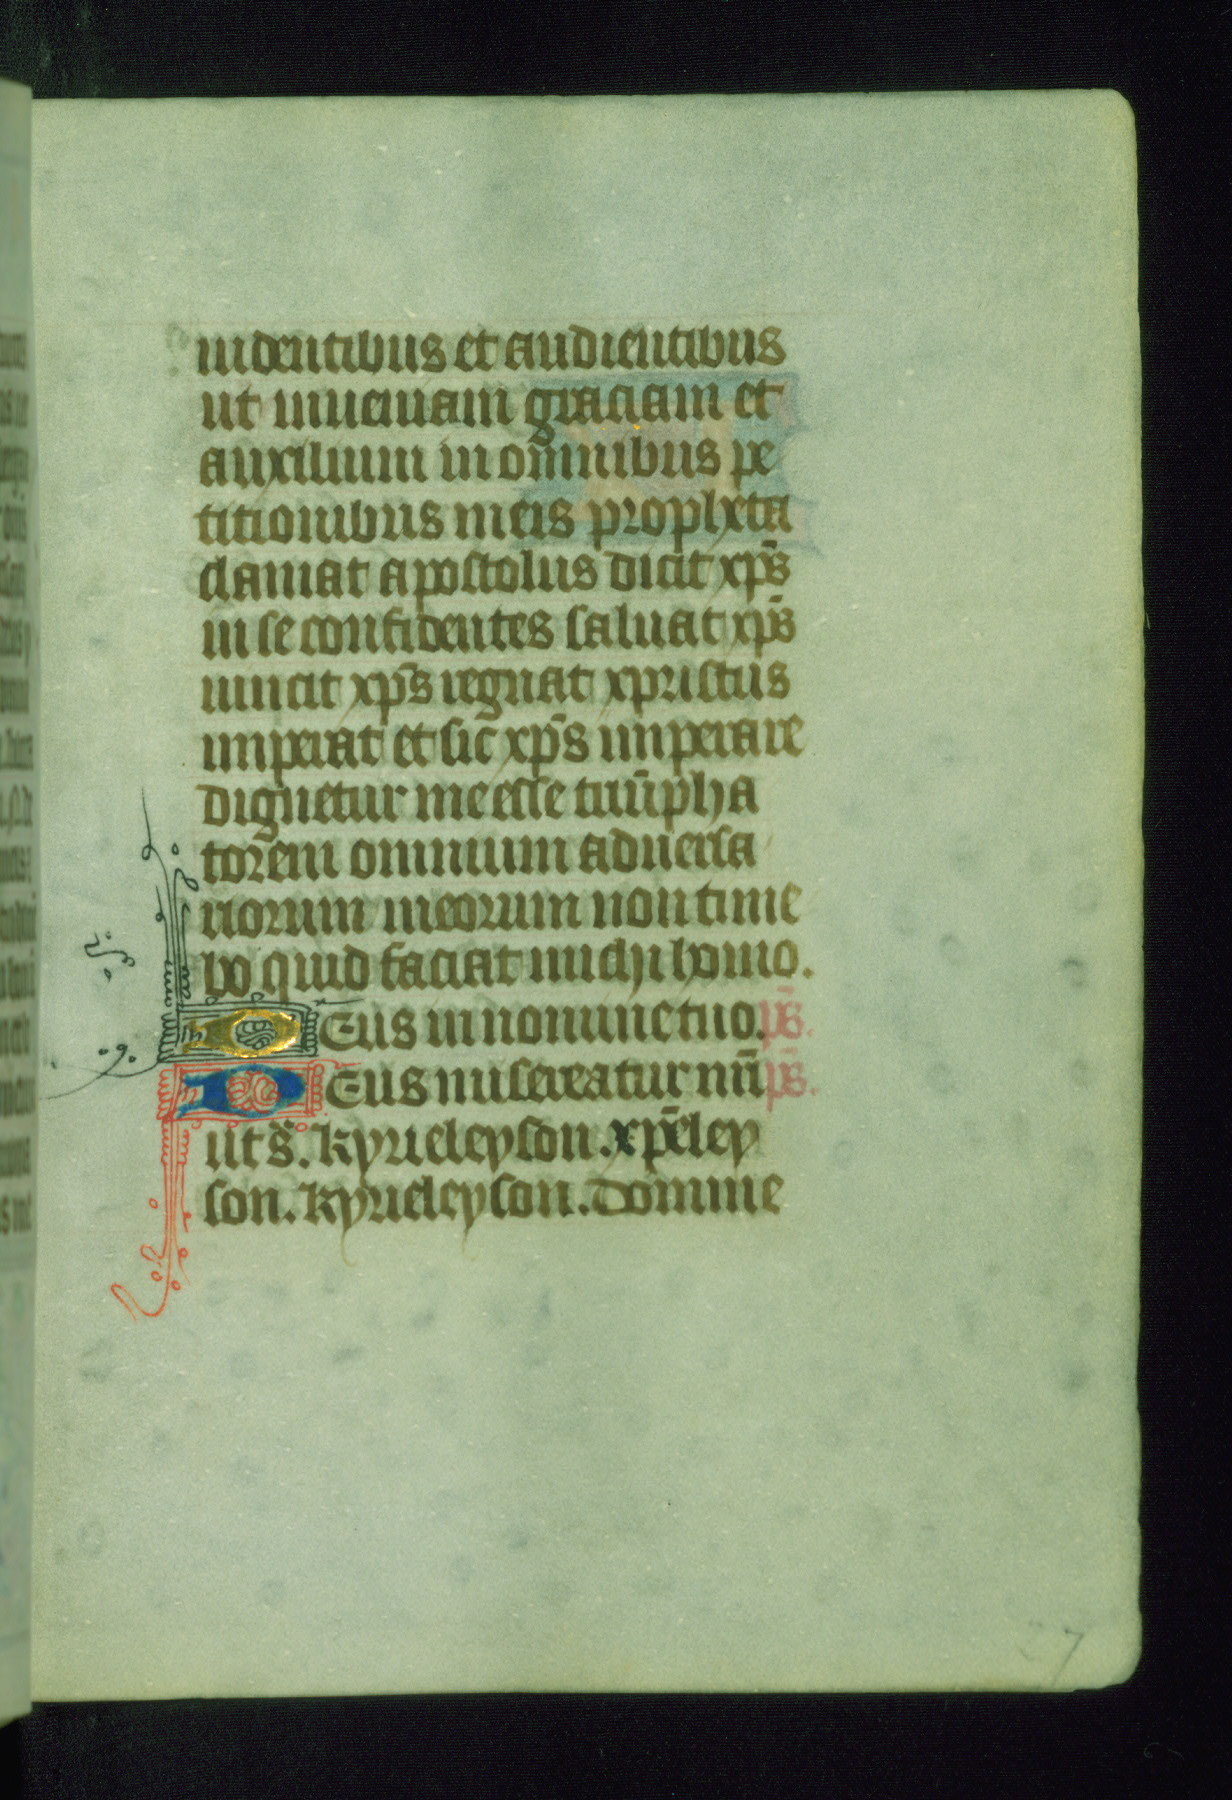 uidentibus et audientibus
ut inueniam graciam et
auxilium in om̄nibus pe
titionibus meis propheta
clamat apostolus dicit xp̄s
in se confidentes saluat xp̄s
uincit xp̄s regnat xpristus
imperat et sic̄ xp̄s imperare
dignetur me esse triūpha
torem omnium aduersa
riorum meorum non time
bo quid faciat michi homo.
Deus in nomine tuo. p̄s.
Deus misereatur nr̄i p̄s.
ut s̄. kyrieleyson. xp̄eley
son. kyrieleyson. Domine
37